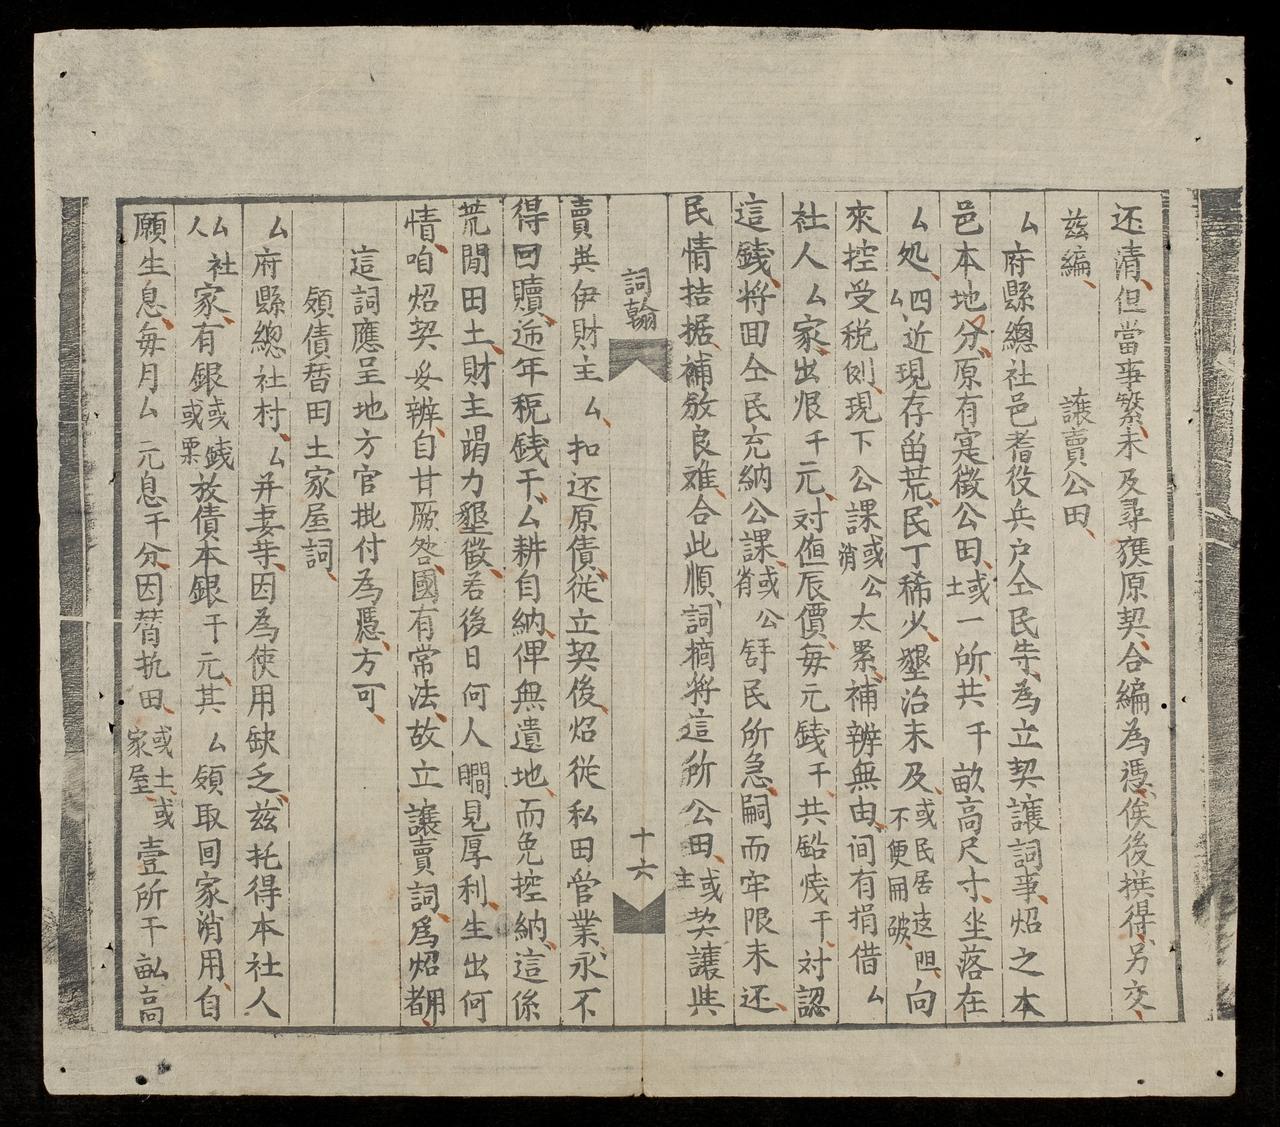 还清但當事繁未及尋獲原契合編為憑俟後撰得另交
茲編
讓賣公田
厶府縣總社邑耆役兵户仝民等為立契讓詞事炤之本
邑本地分原有寔徵公田或土一所共千畝高尺寸坐落在
厶処厶四近現存畄荒民丁稀少墾治未及或民居迄不便用破向
來控受税例現下公課或公消太累補辨無由间有捐借厶
社人厶家出恨千元对值辰價每元錢千共鉛錢千对認
這錢将囬仝民充納公課或公消舒民所急嗣而牢限未还
民情拮据補敖良难合此順詞摘将這所公田或主契讓與
詞翰
十六
賣共伊財主厶扣还原債從立契後炤從私田管業永不
得回贖逓年税錢干厶耕自納俾無遺地而免控納這係
荒閒田土財主竭力墾徵若後日何人瞯見厚利生出何
情咱炤契妥辨自甘厥咎國有常法故立讓賣詞爲炤用者
這詞應呈地方官批付為憑方可
領債暜田土家屋詞
厶府縣總社村厶并妻等因為使用缺乏茲托得本社人
厶人社家有銀或錢或粟放債本銀干元其厶領取回家消用自
願生息每月厶元息千分因暜执田或土或家屋壹所干畆高